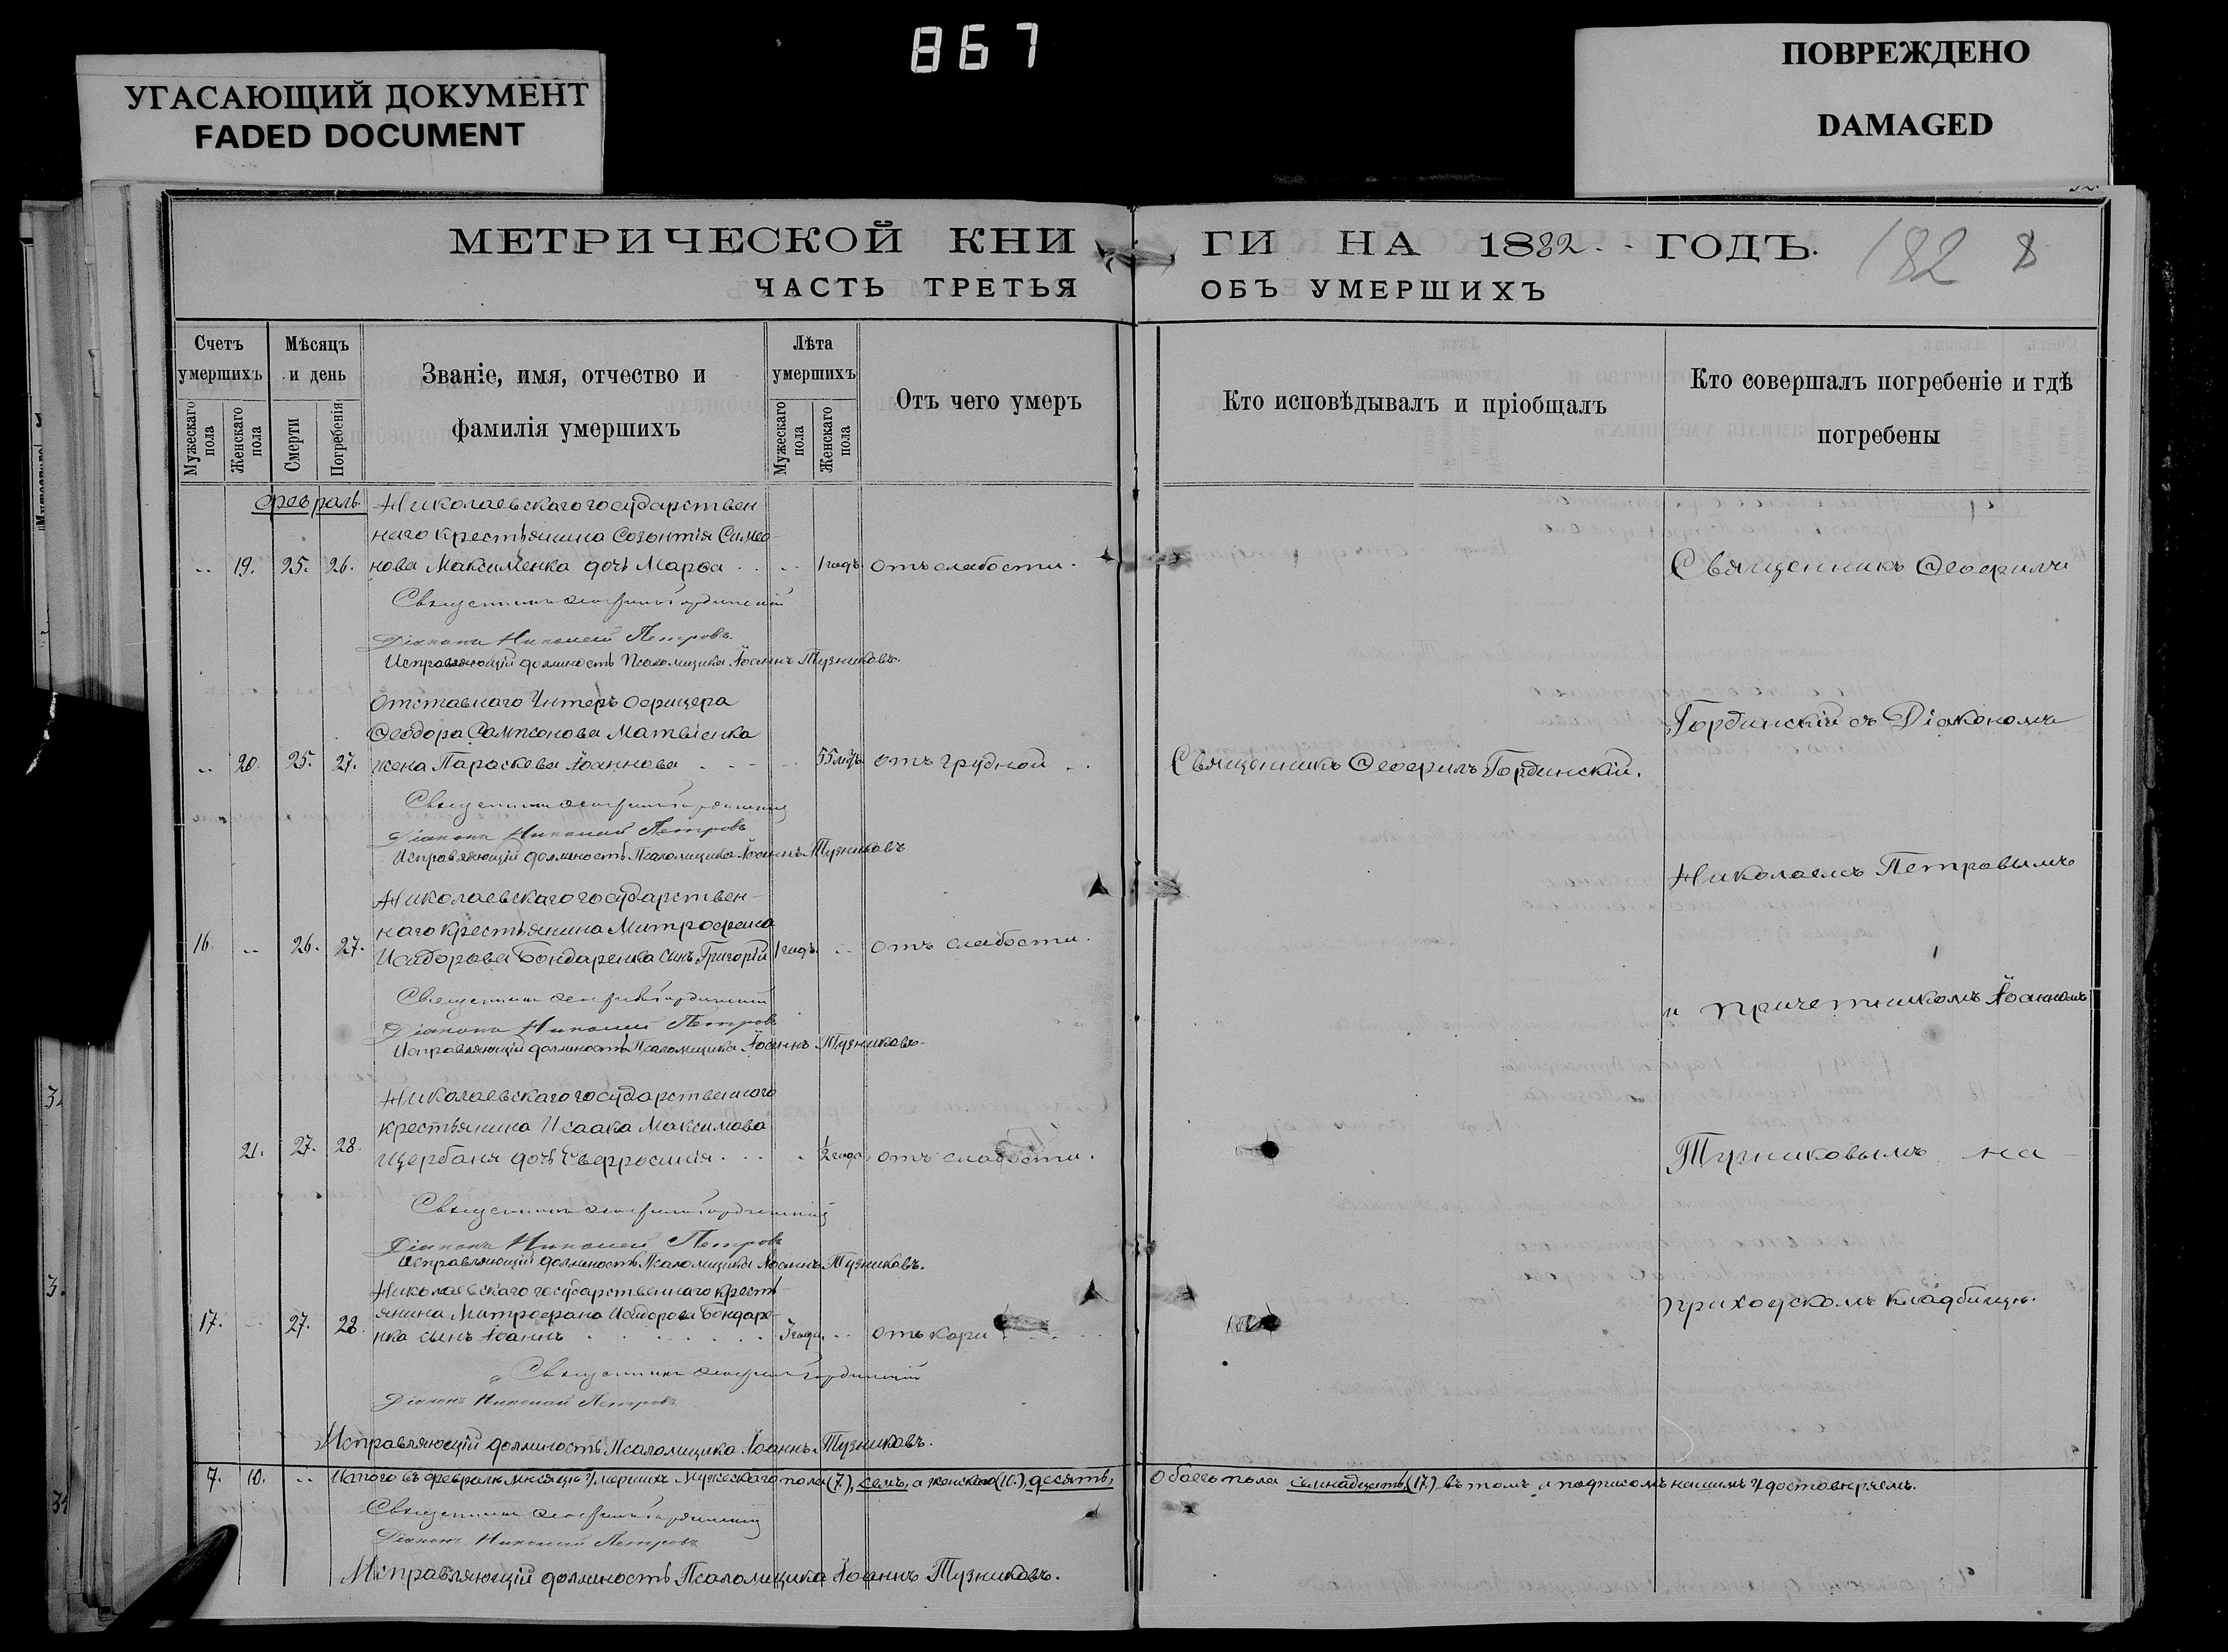 867
УГАСАЮЩИЙ ДОКУМЕНТ
FADED DOCUMENT
ПОВРЕЖДЕНО
DAMAGED
МЕТРИЧЕСКОЙ КНИ
ГИ НА 1882 ГОДЪ.
182 8
ЧАСТЬ ТРЕТЬЯ
ОБЪ УМЕРШИХЪ
Счетъ умершихъ
Мужескаго пола
Женскаго пола
Мѣсяцъ и день
Смерти
Погребенія
Званіе, имя, отчество и фамилія умершихъ
Лѣта умершихъ
Мужескаго пола
Женскаго пола
Отъ чего умеръ
Кто исповѣдывалъ и пріобщалъ
Кто совершалъ погребеніе и гдѣ погребены
Февраль.
Николаевскаго государствен
наго крестьянина Созонтія Симео-
19. 25. 26. нова Максименка дочь Марѳа 1 годъ отъ слабости.
Священникъ Ѳеофилъ Гординскій
Діаконъ Николай Петровъ
Исправляющій должность Псаломщика Іоаннъ Тузниковъ.
Отставнаго Унтеръ Офицера
Ѳеодора Сампсонова Матвіенка
20. 25. 27. жена Параскева Іоаннова 55 лѣтъ отъ грудной
Священникъ Ѳеофилъ Гординскій.
Священникъ Ѳеофилъ Гординскій
Діаконъ Николай Петровъ
Исправляющій должность Псаломщика Іоаннъ Тузниковъ
Николаевскаго государствен-
наго крестьянина Митрофана
16. 26. 27. Исидорова Бондаренка сынъ Григорій 1 годъ. отъ слабости.
Священникъ Ѳеофилъ Гординскій
Діаконъ Николай Петровъ
Исправляющій должность Псаломщика Іоаннъ Тузниковъ.
Николаевскаго государственнаго
крестьянина Исаака Максимова
21. 27. 28. Щербаня дочь Евфросинія 1/2 года отъ слабости.
Священникъ Ѳеофилъ Гординскій
Діаконъ Николай Петровъ
Исправляющій должность Псаломщика Іоаннъ Тузниковъ.
Николаевскаго государственнаго кресть-
янина Митрофана Исидорова Бондаре-
17. 27. 28. нка сынъ Іоаннъ 3 года. отъ кори
Священникъ Ѳеофилъ Гординскій
Діаконъ Николай Петровъ
Исправляющій должность Псаломщика Іоаннъ Тузниковъ.
Священникъ Ѳеофилъ
Гординскій съ Діакономъ
Николаемъ Петровымъ
и причетникомъ Іоанномъ
Тузниковымъ на
приходскомъ кладбищѣ.
7. 10. Итого въ февралѣ мѣсяцѣ умершихъ Мужескаго пола (7.), семь, а женскаго (10.), десять,
Обоего пола семнадцать, (17.) въ томъ и подписомъ нашимъ удостовѣряемъ.
Священникъ Ѳеофилъ Гординскій
Діаконъ Николай Петровъ
Исправляющій должность Псаломщика Іоаннъ Тузниковъ.